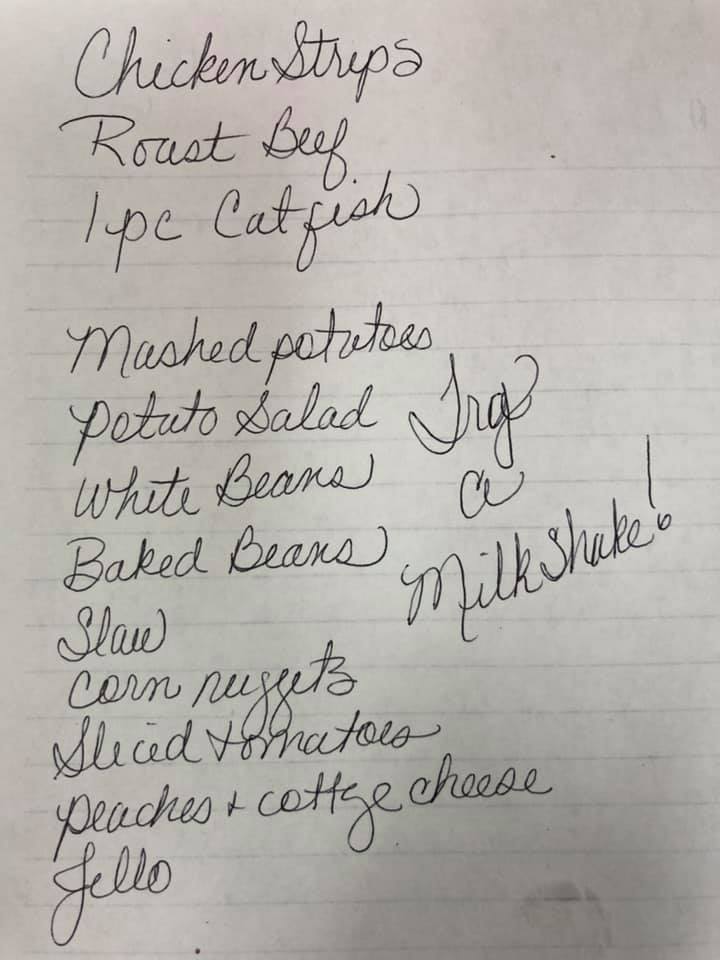 Chicken Strips
Roast Beef
1 pc Catfish
Mashed potatoes
Potato Salad
White Beans
Baked Beans
Slaw
Corn nuggets
Sliced tomatoes
peaches + cottge cheese
Jello
Try
a
Milkshake!